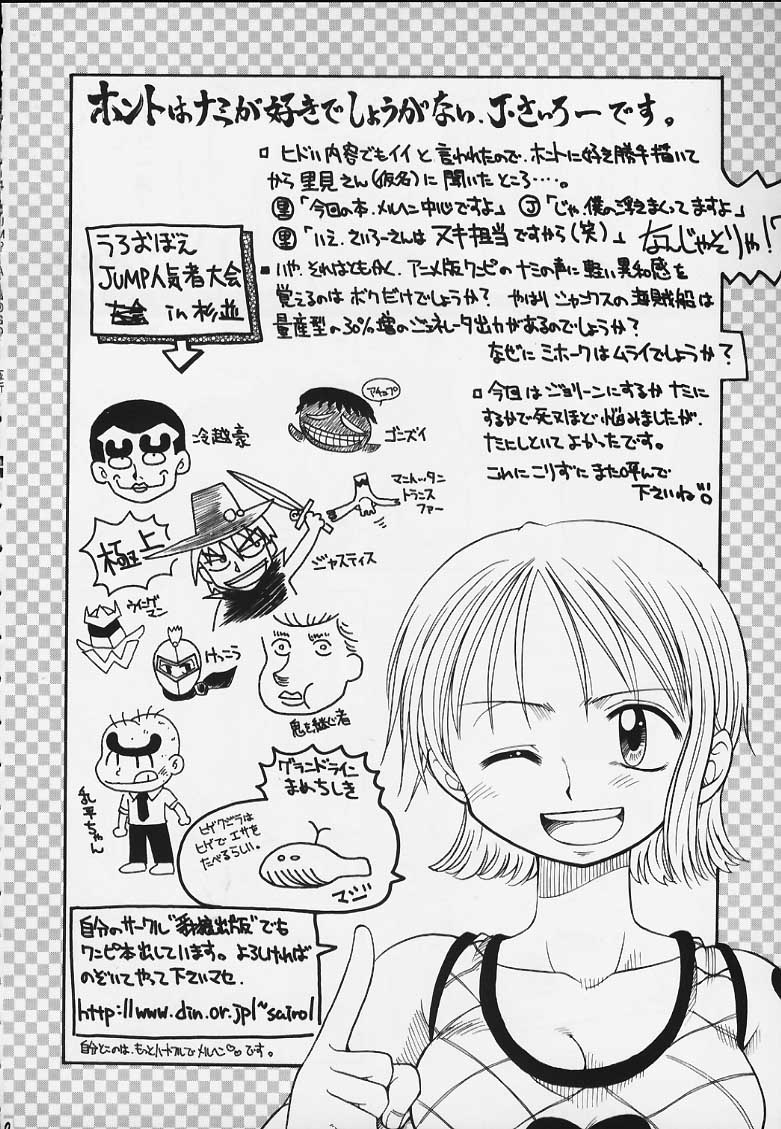 ホントはナミが好きでしょうがない、J・さいろーです。
ヒドい内容でもイイと言われたので、ホントに好き勝手描いて
から里見さん(仮名)に聞いたところ‥‥。
里「今回の本、メルヘン中心ですよ」 J「じゃ、僕の浮きまくってますよ」
里「いえ、さいろーさんはヌキ担当ですから(笑)」 なんじゃそりゃ!?
いや、それはともかく、アニメ版ワンピのナミの声に軽い異和感を
覚えるのはボクだけでしょうか? やはりシャンクスの海賊船は
量産型の30%増のジェネレータ出力があるのでしょうか?
なぜにミホークはムライでしょうか?
今回はジョリーンにするかナミに
するかで死ぬほど悩みましたが、
たにしといてよかったです。
これにこりずにまた呼んで
下さいね
うろおぼえ
JUMP人気者大会
in 杉並
冷越豪
アチョプ
ゴンズイ
マンハッタン
トランス
ファー
極上
ジャスティス
ウイングマン
けっこう
息を継ぐ者
乳平ちゃん
グランドライン
まめちしき
ヒゲクジラは
ヒゲでエサを
たべるらしい。
マジ
自分のサークル
でも
ワンピ本出しています。よろしければ
のぞいてやって下さいマセ.
http://www.din.or.jp/~sairo/
自分とこのは、もっとハートフルでメルヘン♡♡です。